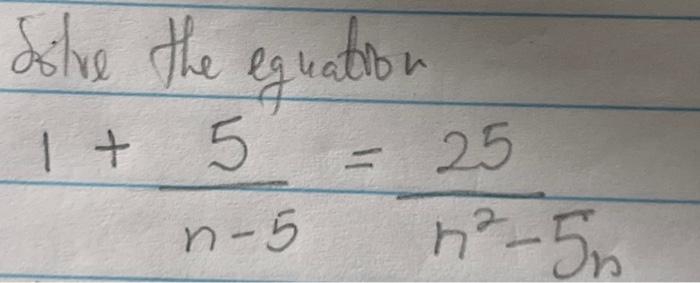 Solve the equation
1 + 5/(n-5) = 25/(n²-5n)